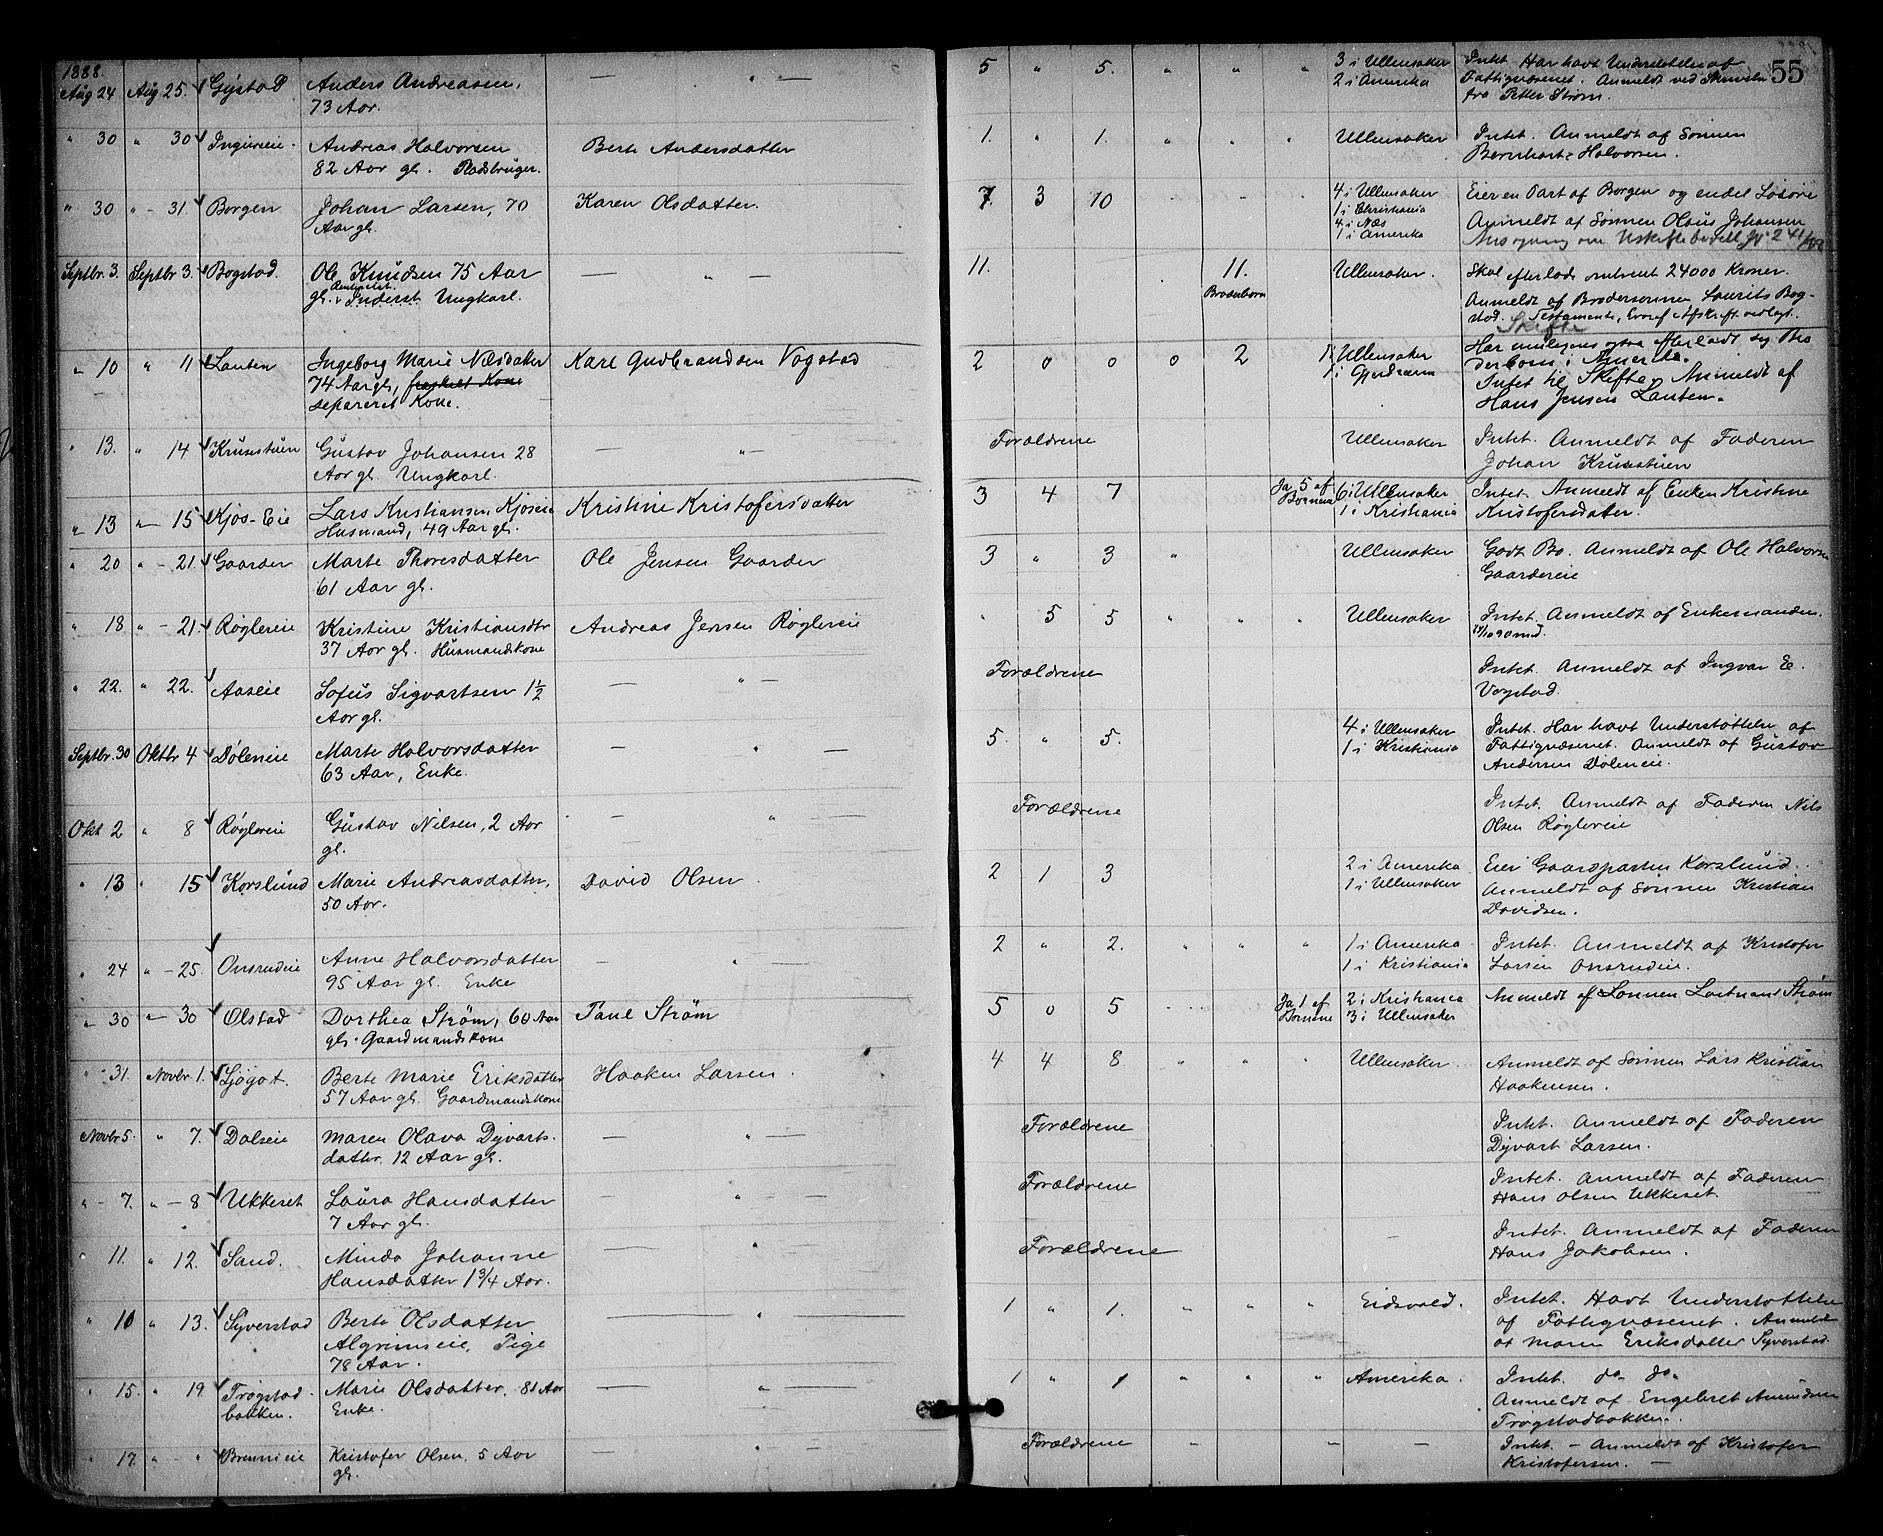 55
1888.
Aug 24 Aug 25. Gjistad Anders Andreasen, — " — 5 " 5. " " " 3 i Ullensaker Intet. Har havt Understøttelse af
73 Aar. 2 i Amerika Fattigvæsenet. Anmeldt ved Skrivelse
fra Petter Strøm.
" 30 " 30 Andreas Halvorsen Berte Andersdatter 1. " 1. " " " Ullensaker Intet. Anmeldt af Sønnen
82 Aar gl. Pladsbruger. Bernhart Halvorsen.
" 30 " - 31. Borgen Johan Larsen, 70 Karen Olsdatter. 7. 3 10 " " " 4 i Ullensaker Eier en Part af Borgen og endel Løsøre
Aar gl. 1 i Christiania Anmeldt af Sønnen Olaus Johansen
4 i Næs
1 i Amerika
Septbr. 3. Septbr 3. Bogstad. Ole Knudsen 75 Aar — " — 11. 11. Ullensaker. Skal efterlade omtrent 24000 Kroner.
gl. Inderst Ungkarl. Broderbørn Anmeldt af Brodersønnen Laurits Bog-
stad. Testamente, hvoraf Afskrift vedlagt.
Skifte
" 10 " 11 Lauten Ingeborg Marie Nilsdatter Karl Gudbrandsen Vogstad 2 0 0 0 2 1 i Ullensaker Har muligens ogsaa efterladt sig Bro
74 Aar gl, fraskilt Kone 1 i Gjerdrum derbørn i Amerika.
separeret Kone. Intet til Skifte. Anmeldt af
Hans Jensen Lauten.
" 13. " 14 Krusestuen Gustav Johansen 28 — " — Forældrene Ullensaker Intet. Anmeldt af Faderen
Aar gl. Ungkarl. Johan Krusestuen
" 13 " - 15 Kjøs-Eie Lars Kristiansen Kjøseie Kristine Kristofersdatter 3 4 7 Ja 5 af Børnene 6 i Ullensaker Intet. Anmeldt af Enken Kristine
Husmand, 49 Aar gl. 1 i Kristiania Kristofersdatter.
" 20 " - 21. Gaarder Marte Thoresdatter Ole Jensen Gaarder 3 " 3 " Ullensaker Godt Bo. Anmeldt af Ole Halvorsen
61 Aar gl. Gaardereie
" 18 " - 21. Røglereie Kristine Kristiansdtr Andreas Jensen Røglereie " 5 5 " " " Ullensaker Intet. Anmeldt af Enkemanden.
37 Aar gl. Husmandskone
" 22. " 22. Aaseie Sofus Sigvartsen 1½ — " — Forældrene Intet. Anmeldt af Ingvar E.
Aar gl. Vogstad.
Septbr. 30 Oktbr 4 Døleneie Marte Halvorsdatter — " — 5. " 5. 4 i Ullensaker Intet. Har havt Understøttelse af
63 Aar, Enke. 1 i Kristiania Fattigvæsenet. Anmeldt af Gustav
Andersen Døleneie.
Okt 2 " 8 Røglereie Gustav Nilsen, 2 Aar — " Forældrene Intet. Anmeldt af Faderen Nils
gl. Olsen Røglereie
" 13 " 15 Korslund Marie Andreasdatter, David Olsen. 2 1 3 2 i Amerika Eier Gaardparten Korslund.
50 Aar. 1 i Ullensaker Anmeldt af Sønnen Kristian
Davidsen.
" 24 " - 25. Onsrudeie Anne Halvorsdatter — " — 2 " 2. " " " 1 i Amerika Intet. Anmeldt af Kristofer
95 Aar gl. Enke 1 i Kristiania Larsen Onsrudeie.
" 30 " - 30 Ølstad Dorthea Strøm, 60 Aar Paul Strøm 5 0 5 Ja 1 af Børnene 2 i Kristiania Anmeldt af Sønnen Løitnant Strøm
gl. Gaardmandskone 3 i Ullensaker
" 31. Novbr 1. Ljøgot Berte Marie Eriksdatter Haaken Larsen. 4 4 8 " " " Ullensaker Anmeldt af Sønnen Lars Kristian
57 Aar gl. Gaardmandskone Haakensen.
Novbr 5. " 7. Dalseie Maren Olava Dyvarts- — " — Forældrene Intet. Anmeldt af Faderen
datter. 12 Aar gl. Dyvart Larsen.
" - 7. " - 8 Ukkeset Laura Hansdatter — " — Forældrene Intet. Anmeldt af Faderen
7 Aar gl. Hans Olsen Ukkeset.
" 11. " 12. Sand. Minda Johanne — " Forældrene — Intet. Anmeldt af Faderen
Hansdatter 1 3/4 Aar. Hans Jakobsen.
" 10 " 13. Syverstad Berte Olsdatter — " — 1 " 1. " " " Eidsvold. Intet. Havt Understøttelse
Algrimseie, Pige af Fattigvæsenet. Anmeldt
78 Aar. af Maren Eriksdatter Syverstad
" 15. " 19 Trøgstad- Marie Olsdatter, 81 Aar — " — 1 " 1 " " " Amerika. Intet. do do.
bakken. Enke. Anmeldt af Engebret Amundsen
Trøgstadbakken.
" 17. " - " Brennieie Kristofer Olsen, 5 Aar — " — Forældrene — — — Intet - Anmeldt af Kristofer
gl. Kristofersen. —